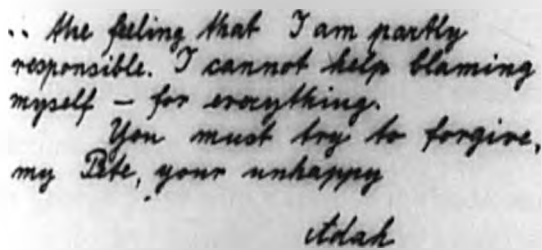 .. the feeling that I am partly
responsible. I cannot help blaming
myself – for everything.
You must try to forgive,
my Pete, your unhappy
Adah